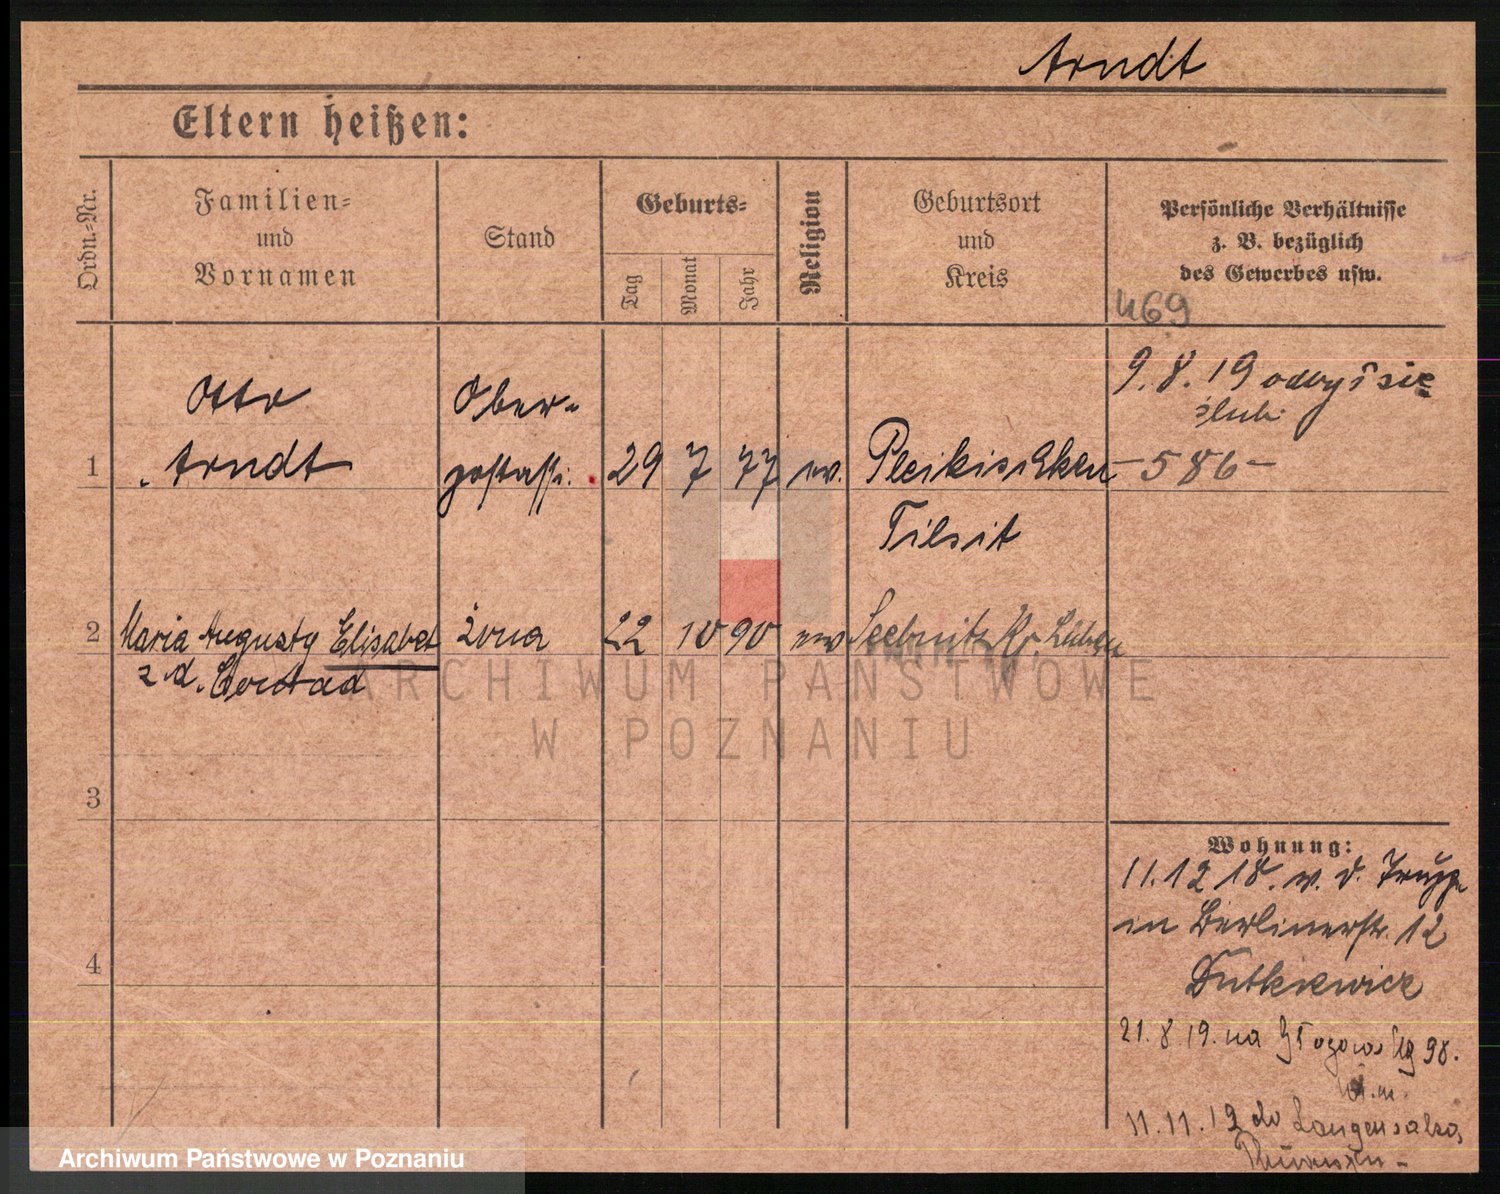 Arndt
Eltern heißen:
Ordn.-Nr.
Familien-
und
Vornamen
Stand
Geburts-
Tag
Monat
Jahr
Religion
Geburtsort
und
Kreis
Persönliche Verhältnisse
z. B. bezüglich
des Gewerbes usw.
469
9.8.19 odbył się
ślub
Otto
Ober-
1 Arndt 29 7 77 ew. Pleikischken -586-
Tilsit
2 Maria Augusty Elisabet żona 22 10 90 ew Seebnitz Kr. Lüben
z d. Conrad
3
4
Wohnung:
11.12 18. v. d. Truppe
in Berlinerstr. 12
Dutkiewicz
21.8 19. na Głogowską 98.
11.11.19 do Langensalza
ARCHIWUM PAŃSTWOWE
W POZNANIU
Archiwum Państwowe w Poznaniu